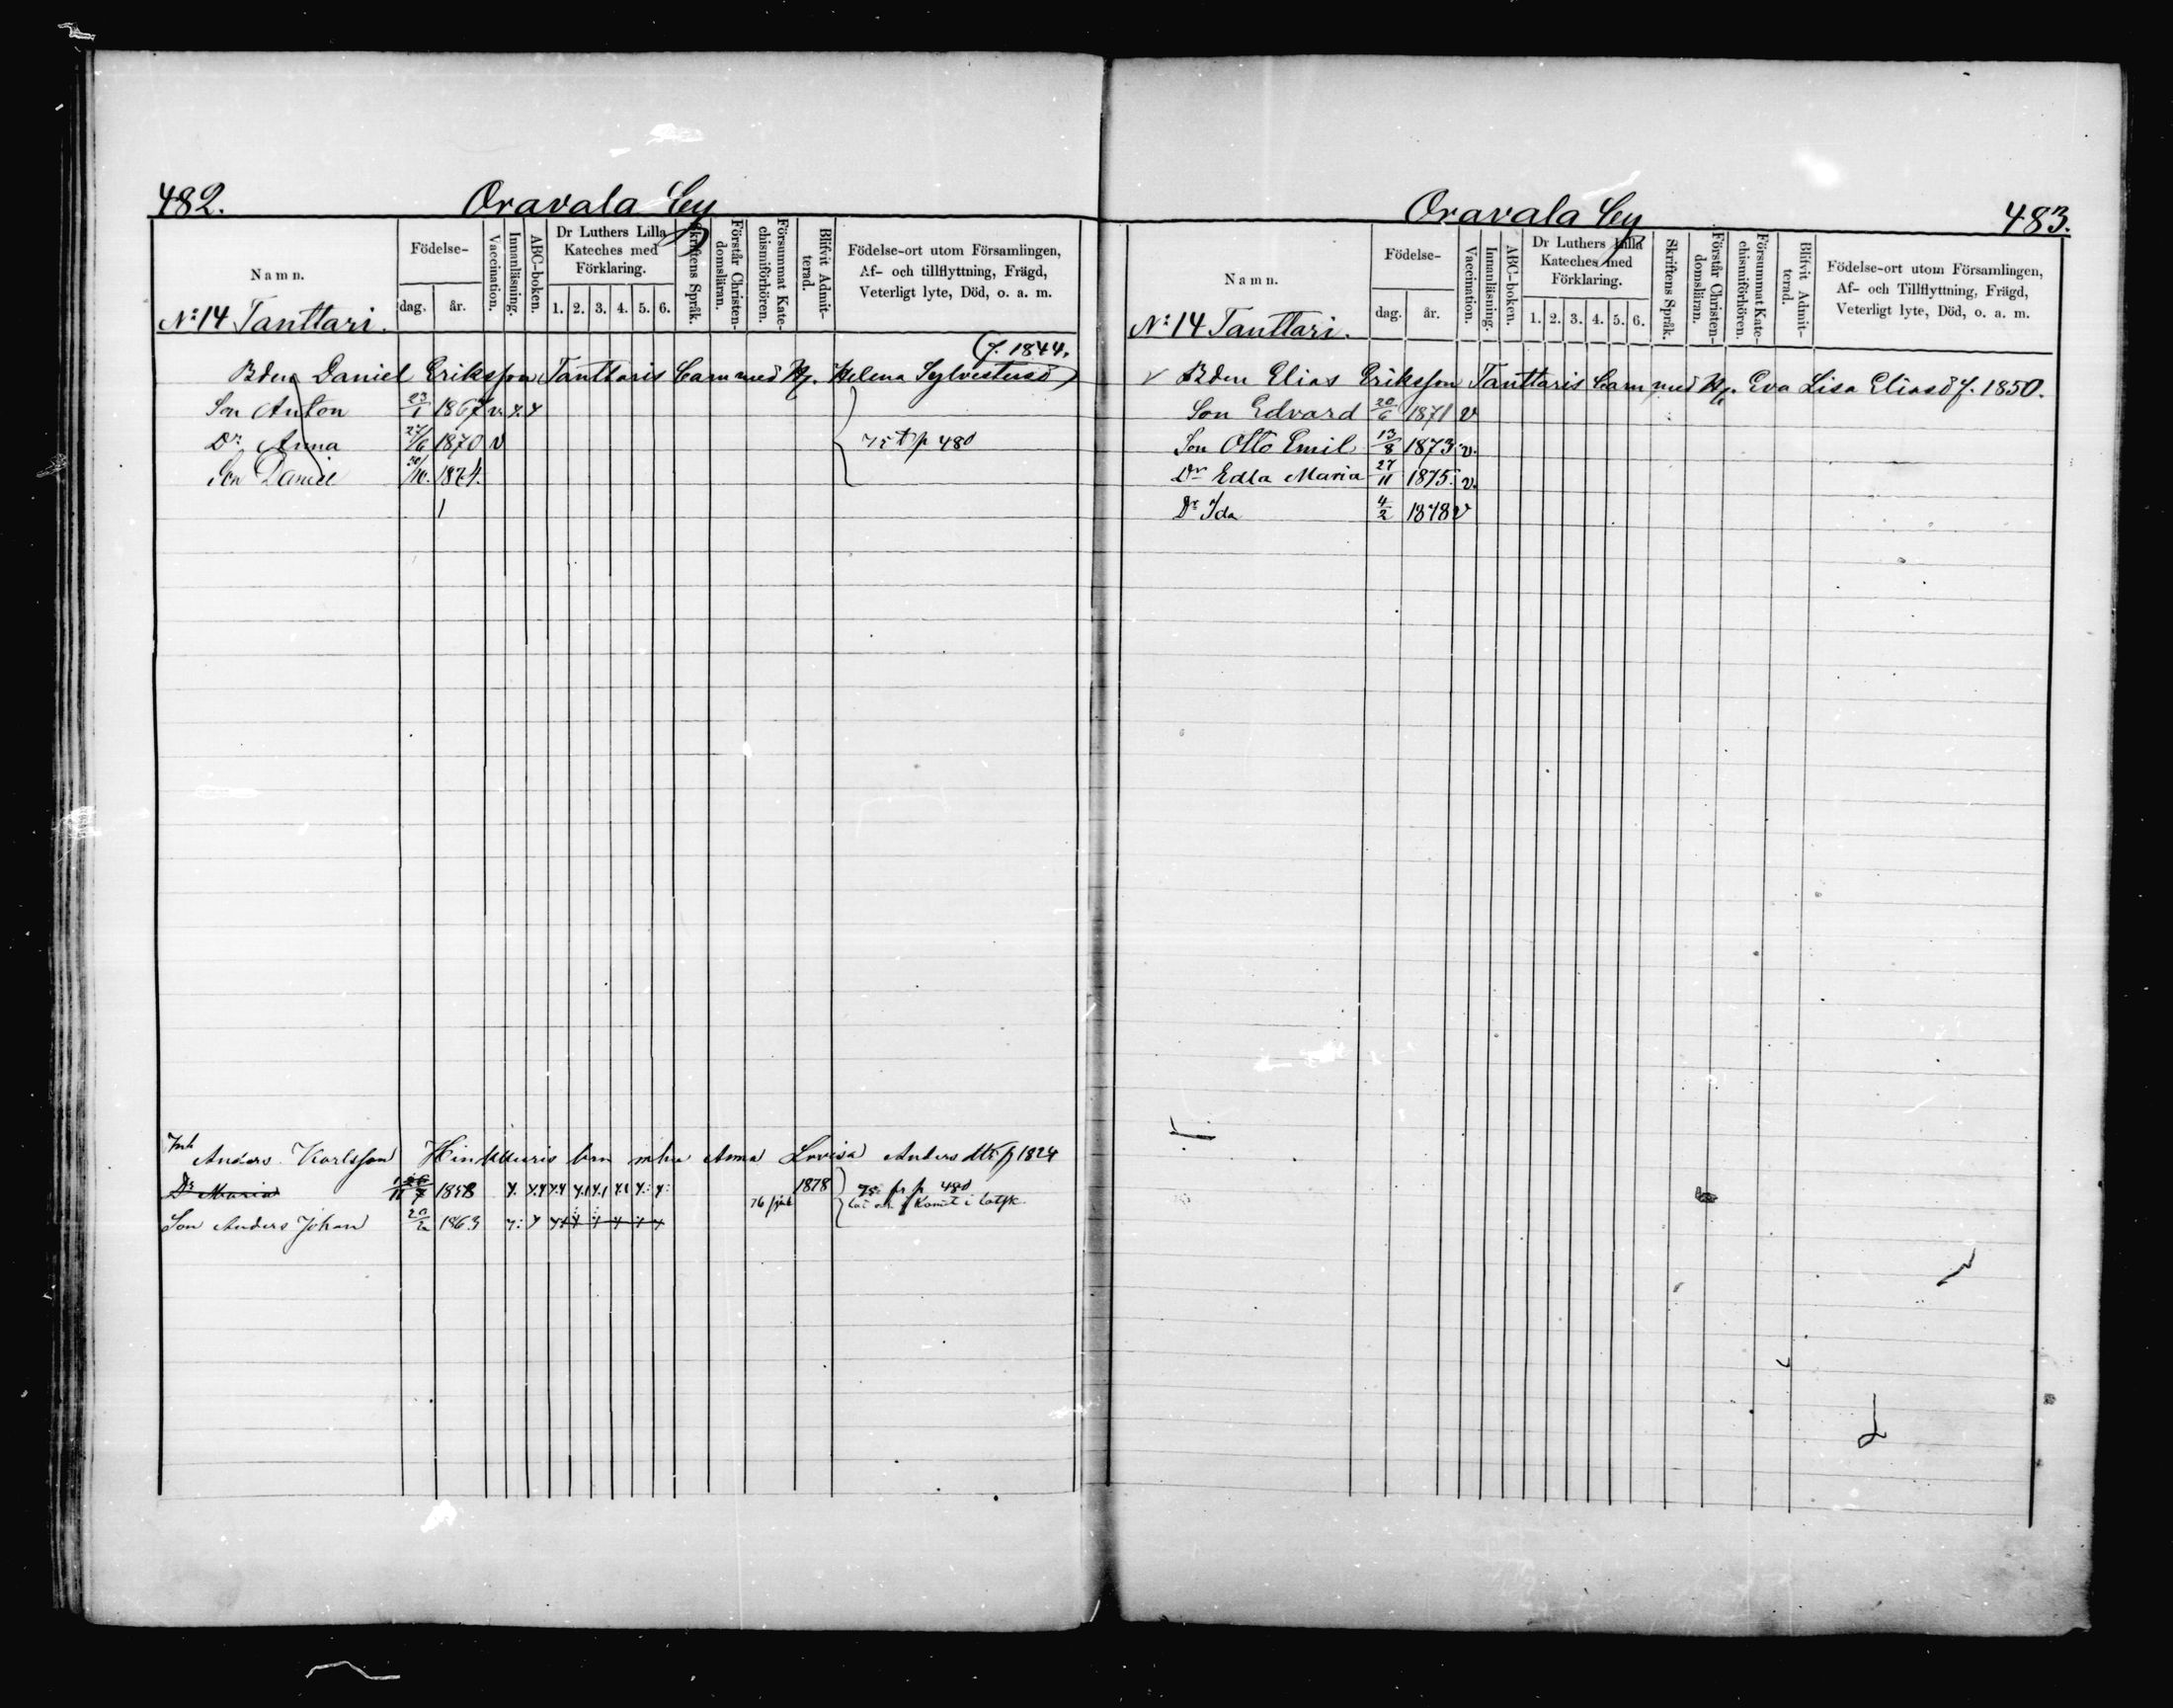 482. Oravala by
Namn.
Födelse-
dag. år.
Vaccination.
Innanläsning.
ABC-boken.
Dr Luthers Lilla
Kateches med
Förklaring.
1. 2. 3. 4. 5. 6.
Skriftens Språk.
Förstår Christen-
domsläran.
Försummat Kate-
chismiförhören.
Blifvit Admit-
terad.
Födelse-ort utom Församlingen,
Af- och tillflyttning, Frägd,
Veterligt lyte, Död, o. a. m.
No 14 Tanttari.
f. 1844.
Bden Daniel Eriksson Tanttaris barn med Hu. Helena Sylvestersd
Son Anton 23/1 1867 v
Dr. Anna 1870 v 75 t p 480
Son Daniel 1874.
Anders Karlsson Hinkkuris brn mhu Anna Lovisa Anders dtr f 1824
Dr Maria 1858 1878 p 480
Son Anders Johan 20/2 1863
Oravala by 483.
Namn.
Födelse-
dag. år.
Vaccination.
Innanläsning.
ABC-boken.
Dr Luthers Lilla
Kateches med
Förklaring.
1. 2. 3. 4. 5. 6.
Skriftens Språk.
Förstår Christen-
domsläran.
Försummat Kate-
chismiförhören.
Blifvit Admit-
terad.
Födelse-ort utom Församlingen,
Af- och Tillflyttning, Frägd,
Veterligt lyte, Död, o. a. m.
No 14 Tanttari.
v Bden Elias Eriksson Tanttaris barn med Hu. Eva Lisa Eliasd f. 1850.
Son Edvard 20/6 1871 v
Son Otto Emil 13/8 1873 v.
Dr Edla Maria 27/11 1875. v.
Dr Ida 4/2 1878 v